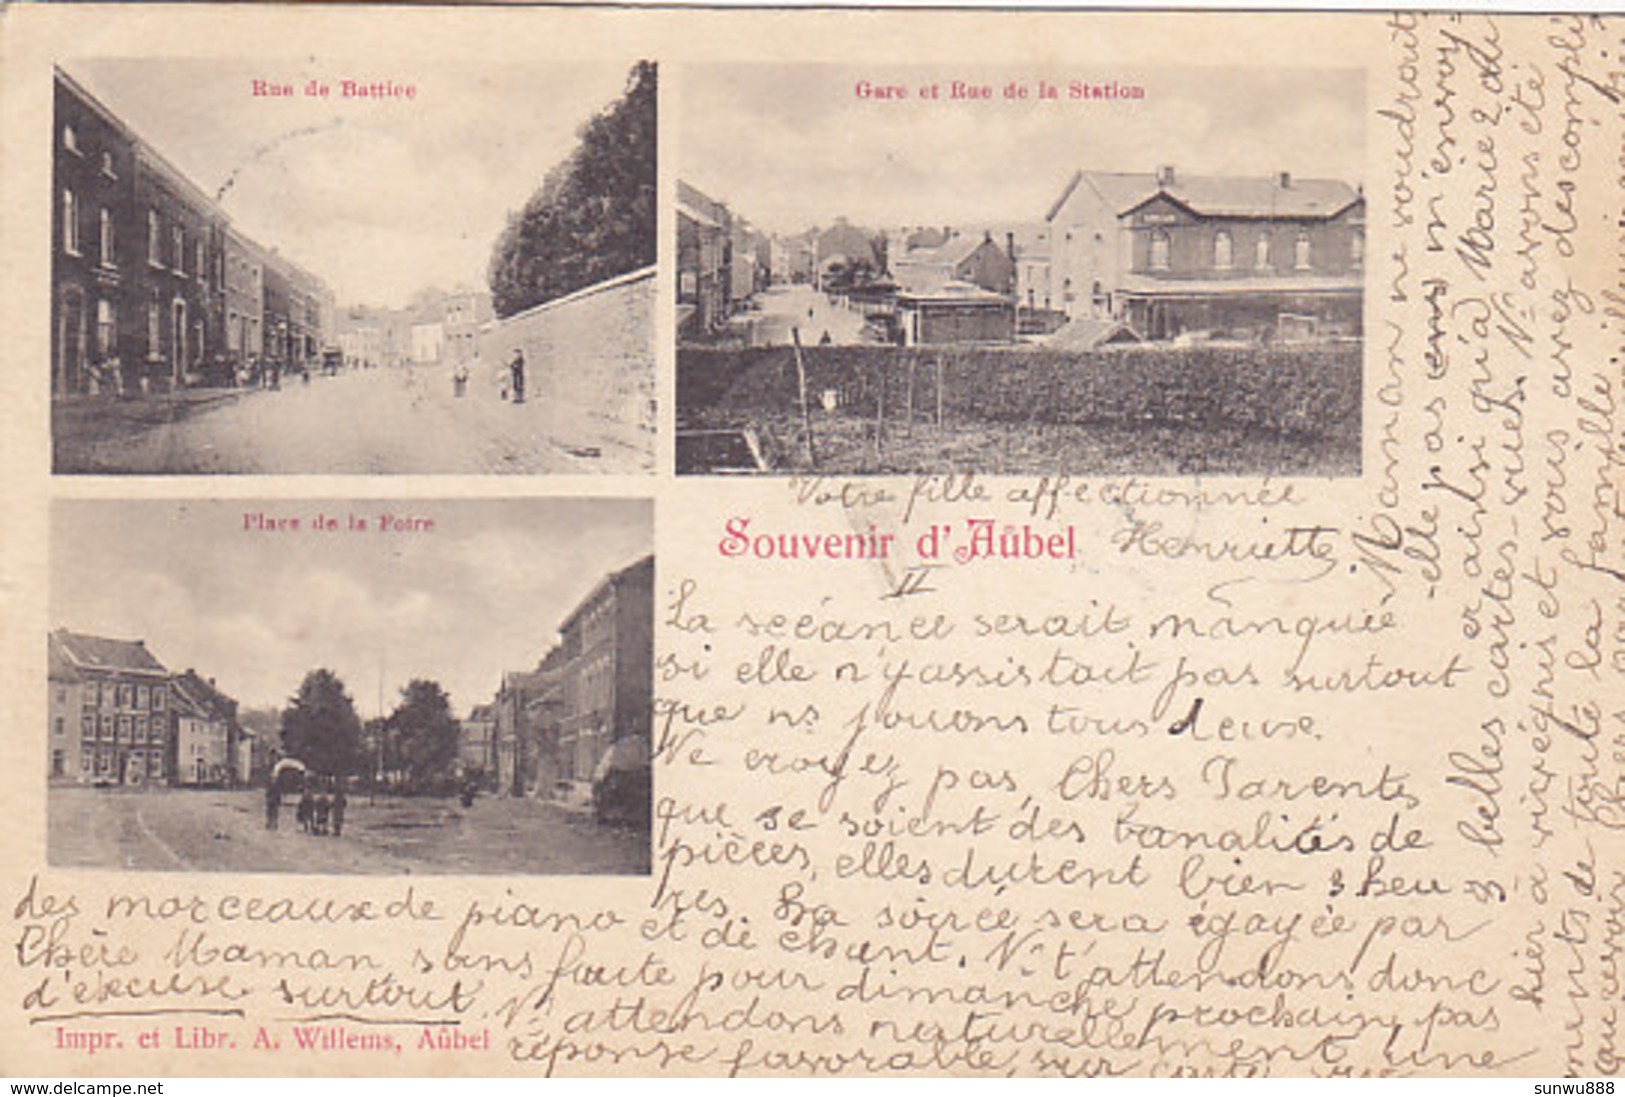 Rue de Battice
Gare et Rue de la Station
Place de la Foire
Souvenir d'Aûbel
Votre fille affectionnée
Henriette.
II
La scéance serait manquée
si elle n'y assistait pas surtout
que ns jouons tous deux.
Ne croyez pas, Chers Parents,
que se soient des banalités de
pièces, elles durent bien 3 heu
res. La soirée sera égayée par
des morceaux de piano et de chant. Ns t'attendons donc
Chère Maman sans faute pour dimanche prochain, pas
d'excuse surtout. Ns attendons naturellement une
réponse favorable, sur carte vue
Impr. et Libr. A. Willems, Aûbel
Maman ne voudrait
-elle pas m'envoy-
er ainsi qu'à Marie 2 ou
3 belles cartes-vues. Ns avons été
hier à et vous avez des compli
ments de toute la famille
au revoir Chers
sunwu888